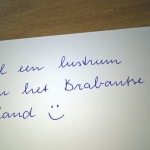 l een lustrum
n het Brabantse
land